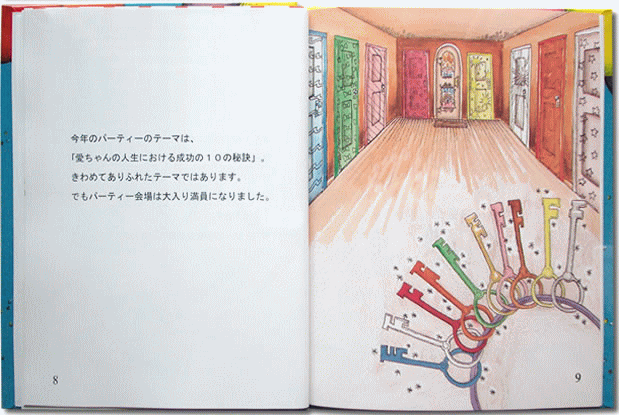 今年のパーティーのテーマは、
「愛ちゃんの人生における成功の１０の秘訣」。
きわめてありふれたテーマではあります。
でもパーティー会場は大入り満員になりました。
8
9